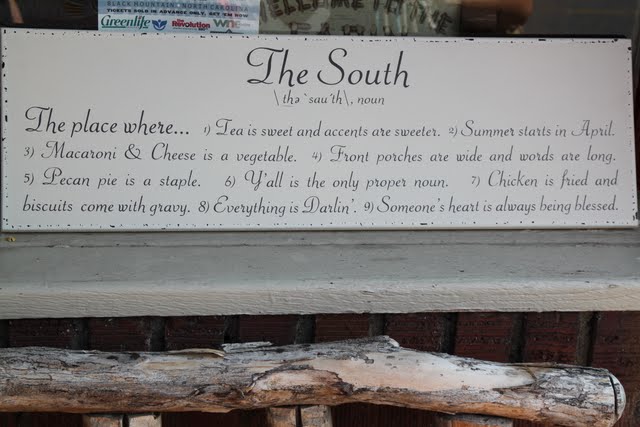 BLACK MOUNTAIN • NORTH CAROLINA
TICKETS SOLD IN ADVANCE ONLY, GET 'EM NOW
Greenlife the Revolution WNC
WELCOME TO THE
The South
\ thə `sau'th\, noun
The place where... 1) Tea is sweet and accents are sweeter. 2) Summer starts in April.
3) Macaroni & Cheese is a vegetable. 4) Front porches are wide and words are long.
5) Pecan pie is a staple. 6) Y'all is the only proper noun. 7) Chicken is fried and
biscuits come with gravy. 8) Everything is Darlin'. 9) Someone's heart is always being blessed.